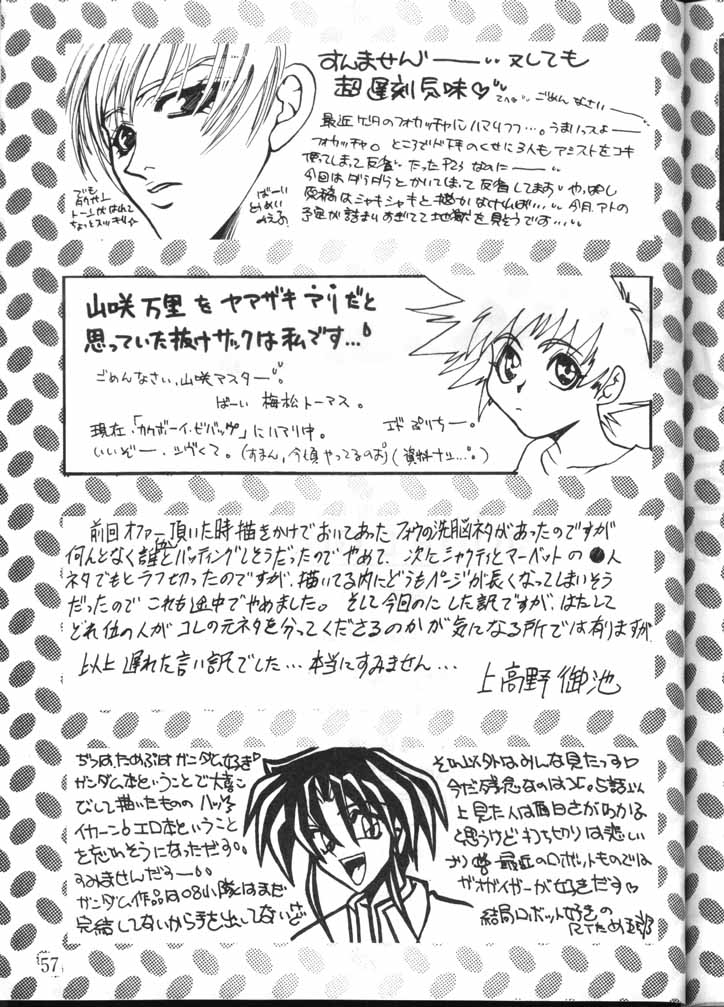 すんませんー 又しても
超遅刻気味♡
ごめんなさいー
最近 のフォカッチャにハマりつつ…。うまいっスよー
フォカッチャ。ところで のくせに3人もアシストをコキ
使ってしまって反省 だったP23なのにー
今回はダラダラとかいてしまって反省してます やっぱし
原稿はシャキシャキと描かなければ… 今月アトの
予定が詰まりすぎてて地獄を見そうです…
でも
トーンがはれて
ちょっとスッキリ☆
ばーい
みえる
山咲万里をヤマザキマリだと
思っていた抜けサックは私です…
ごめんなさい、山咲マスター
ばーい 梅松トーマス。
現在、「カウボーイ・ビバップ」にハマり中。
いいぞー (すまん、今頃やってるのお)(資料ナシ…。)
エドぷりちー。
前回オファー頂いた時描きかけでおいてあったフォウの洗脳ネタがあったのですが
何んとなく誰とバッティングしそうだったのでやめて、次にシャクティとマーベットの●人
ネタでもとラフ切ったのですが、描いてる内にどうもページが長くなってしまいそう
だったので これも途中でやめました。そして今回のにした訳ですが、はたして
どれ位の人が コレの元ネタを分ってくださるのかが気になる所では有りますが
以上遅れた言い訳でした…本当にすみません…
上高野御池
じつはためぶはガンダム好き
ガンダム本ということで大喜こ
びして描いたものの ハッ
イカーンエロ本ということ
を忘れそうになっただす
すみませんだすー
ガンダム作品は08小隊はまだ
完結してないから手を出してないけど
それ以外はみんな見たっす
今だ残念なのはX。5話以
上見た人は面白さがわかる
と思うけど打ち切りは悲しい
最近のロボットものでは
ガオガイガーが好きだす♡
結局ロボット好きの
RTため五郎
57